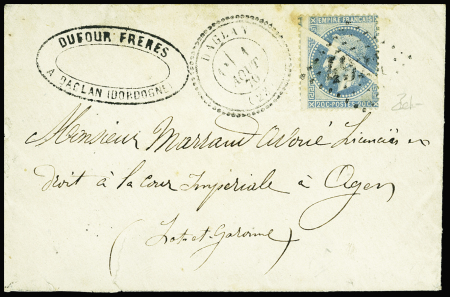 DUFOUR FRÈRES
A DAGLAN (DORDOGNE)
DAGLAN
1
AOUT
(23)
EMPIRE FRANCAIS
20C POSTES 20C
Monsieur Marraud avoué Licencié en
droit à la Cour Impériale à Agen
(Lot et Garonne)